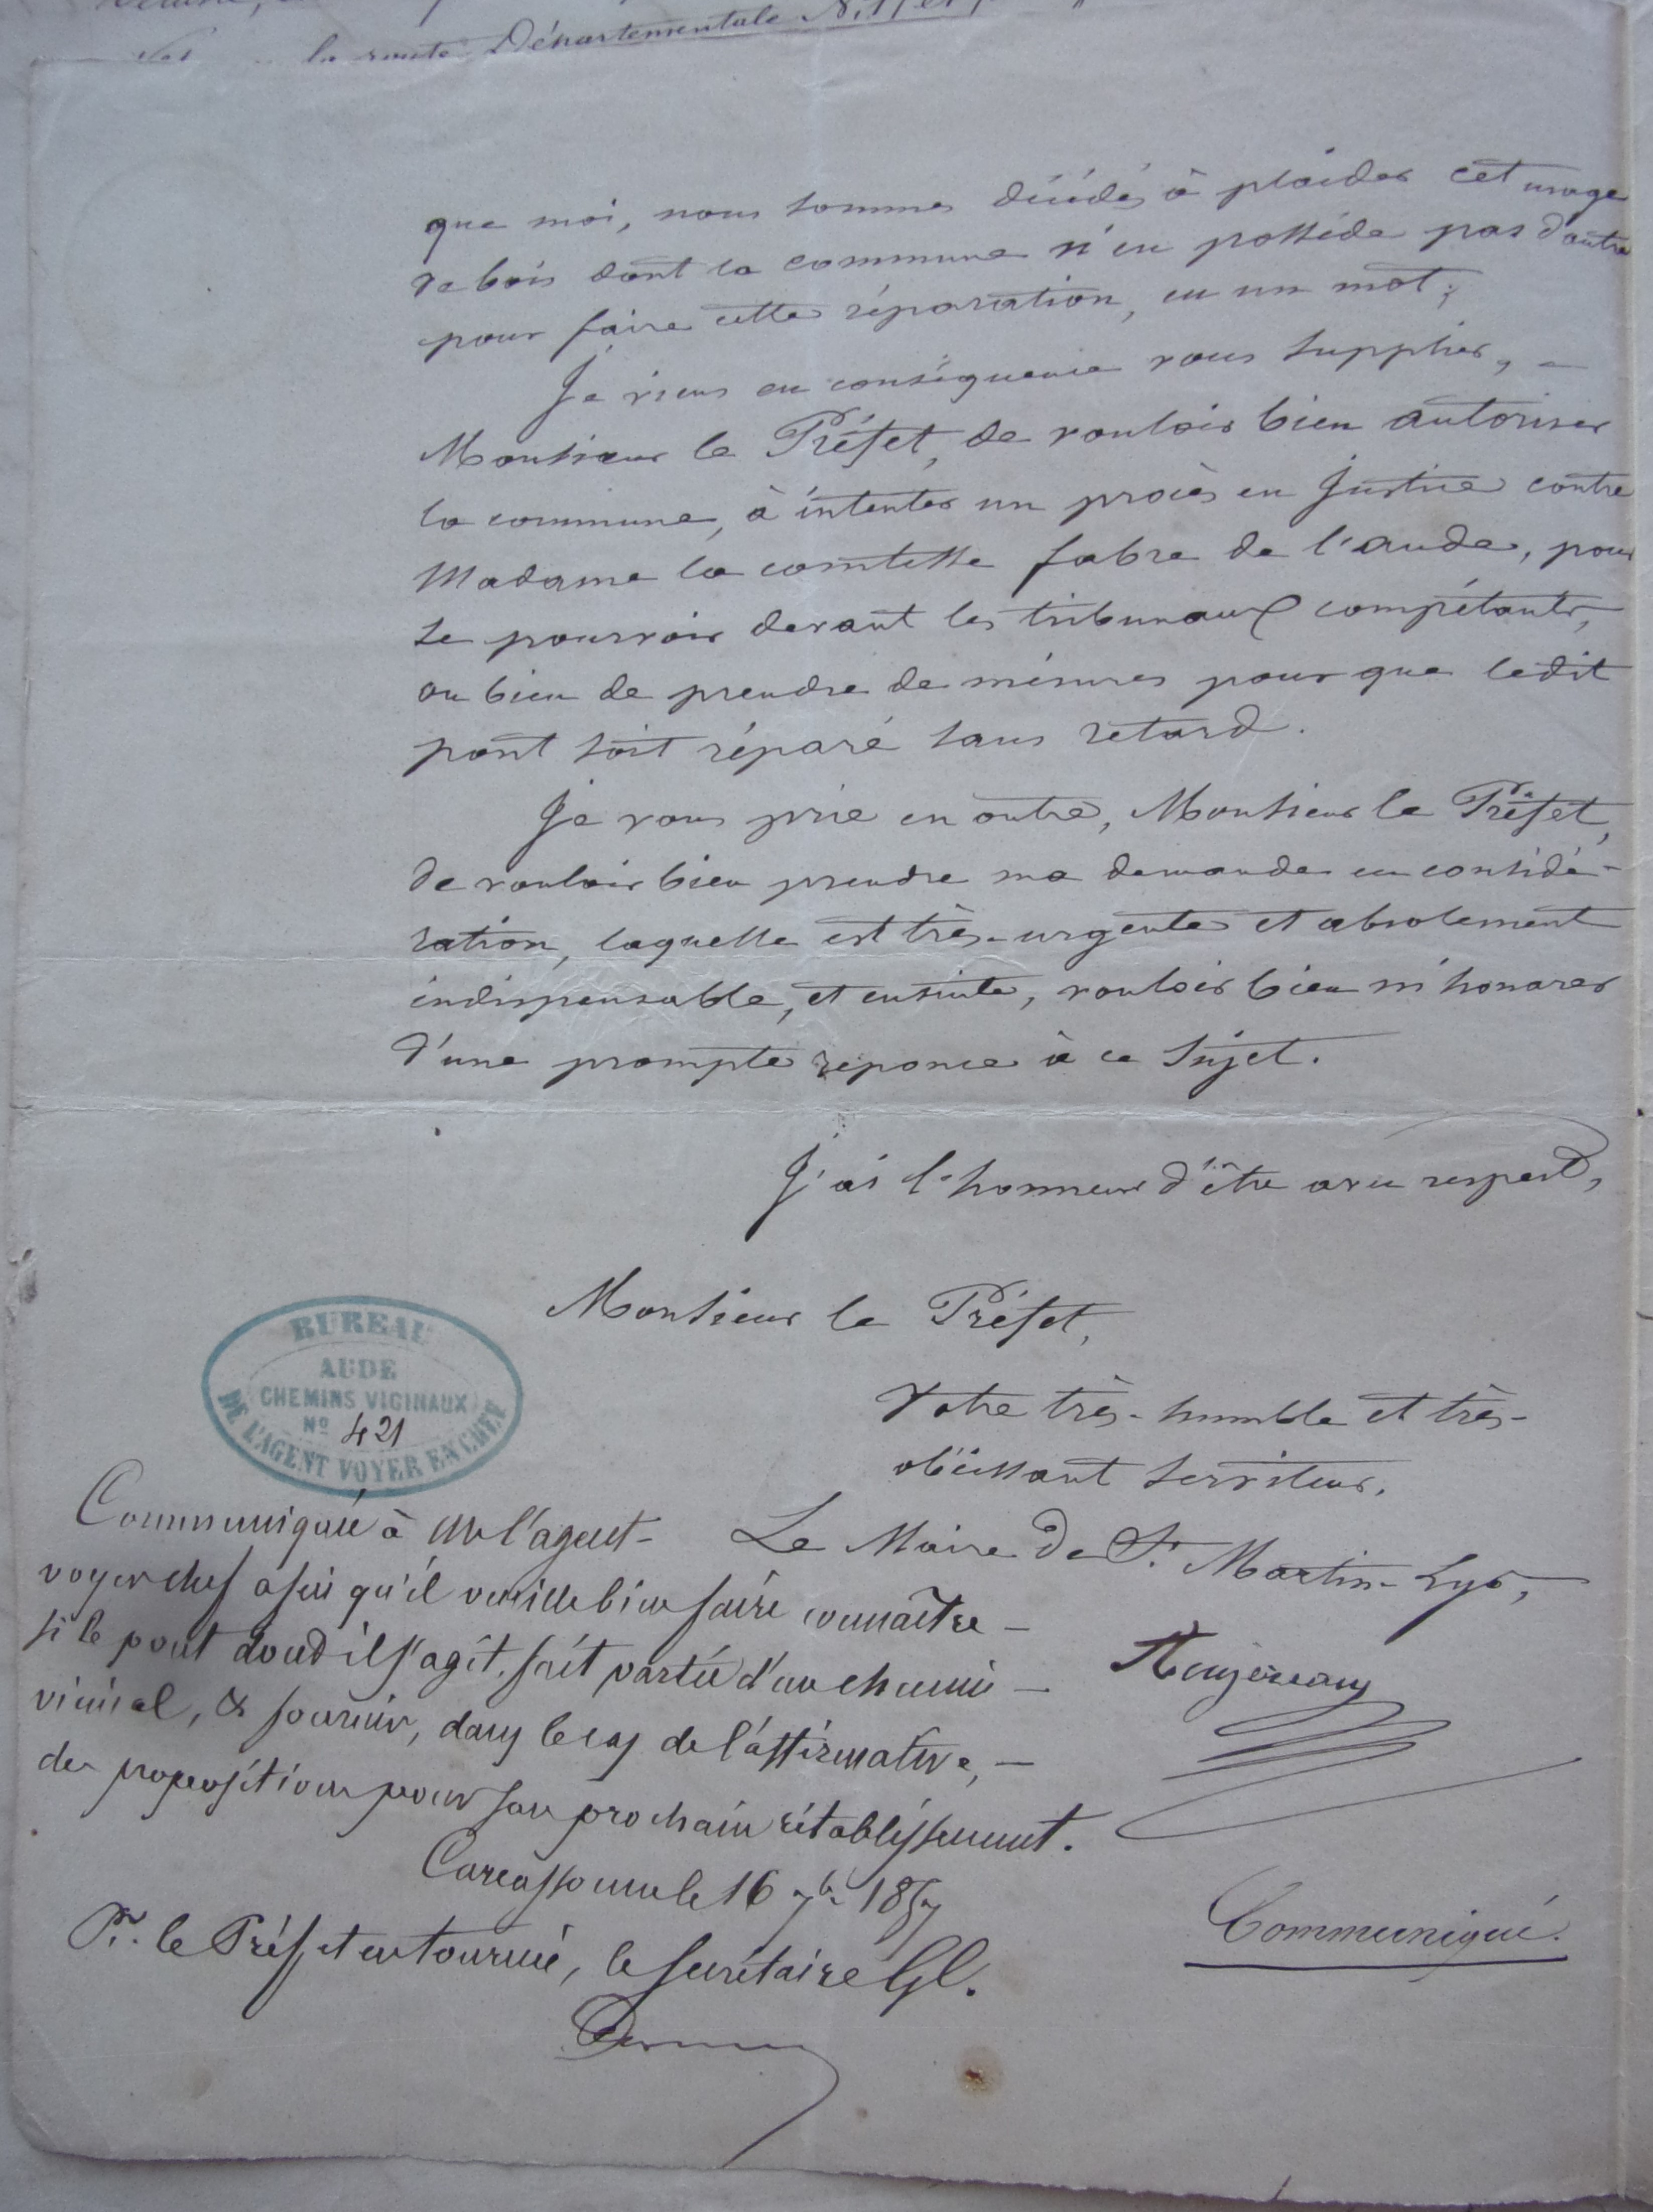 la route Départementale N.
que moi, nous sommes décidés à plaider cet usage
de bois dont la commune n'en possède pas d'autre
pour faire cette réparation, en un mot;
Je viens en conséquence vous supplier, -
Monsieur le Préfet, de vouloir bien autoriser
la commune, à intenter un procès en Justice contre
Madame la comtesse fabre de l'aude, pour
se pourvoir devant les tribunaux compétants,
ou bien de prendre de mésures pour que ledit
pont soit réparé sans retard.
Je vous prie en outre, Monsieur le Préfet,
de vouloir bien prendre ma demande en considé-
ration, laquelle est très-urgente et absolement
indispensable, et ensuite, vouloir bien m'honorer
d'une prompte reponce à ce Sujet.
J'ai l'honneur d'être avec respect,
Monsieur le Préfet,
Votre très-humble et très-
obéissant serviteur.
Le Maire de St. Martin-Lys,
BUREAU
AUDE
CHEMINS VICINAUX
No 421
DE L'AGENT VOYER EN CHEF
Communiqué à Mr l'agent-
voyer chef afin qu'il veuille bien faire connaître -
si le pont dont il s'agit, fait partie d'un chemin -
vicinal, & fournir, dans le cas de l'affirmative, -
des propositions pour son prochain rétablissement.
Carcassonne le 16 7bre 1857
Pr. le Préfet en tournée, le Secrétaire Gl.
Communiqué.